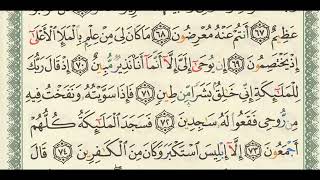 عَظِيمٌ ٦٧ أَنتُمْ عَنْهُ مُعْرِضُونَ ٦٨ مَا كَانَ لِيَ مِنْ عِلْمٍ بِٱلْمَلَإِ ٱلْأَعْلَىٰٓ
إِذْ يَخْتَصِمُونَ ٦٩ إِن يُوحَىٰٓ إِلَىَّ إِلَّآ أَنَّمَآ أَنَا۠ نَذِيرٌ مُّبِينٌ ٧٠ إِذْ قَالَ رَبُّكَ
لِلْمَلَٰٓئِكَةِ إِنِّى خَٰلِقٌۢ بَشَرًا مِّن طِينٍ ٧١ فَإِذَا سَوَّيْتُهُۥ وَنَفَخْتُ فِيهِ
مِن رُّوحِى فَقَعُوا۟ لَهُۥ سَٰجِدِينَ ٧٢ فَسَجَدَ ٱلْمَلَٰٓئِكَةُ كُلُّهُمْ
أَجْمَعُونَ ٧٣ إِلَّآ إِبْلِيسَ ٱسْتَكْبَرَ وَكَانَ مِنَ ٱلْكَٰفِرِينَ ٧٤ قَالَ